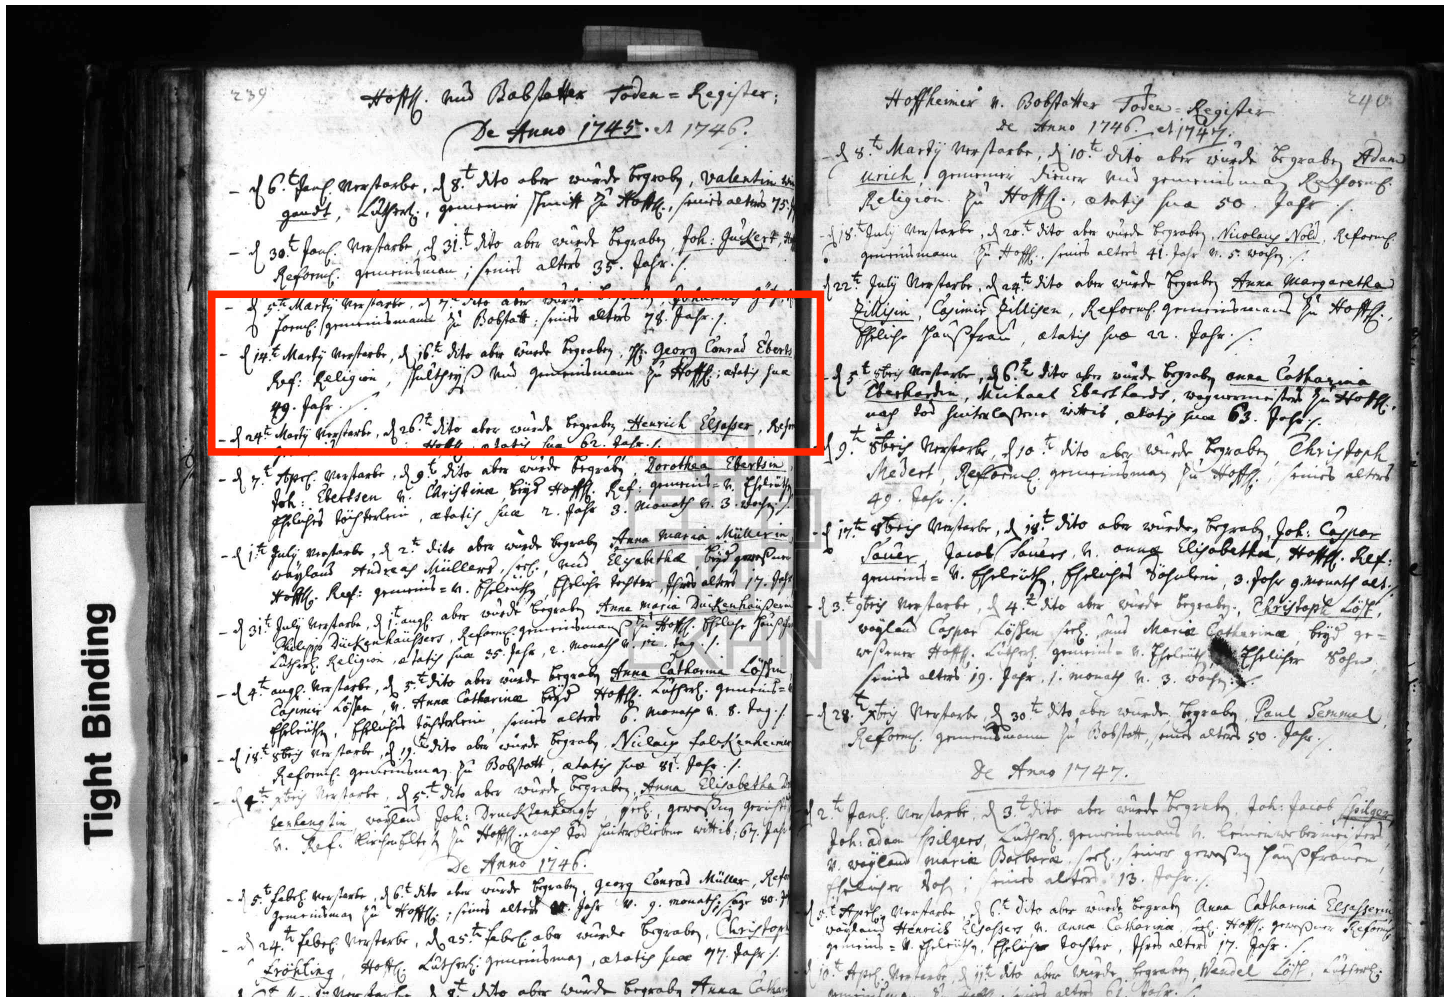 239
Hoffh. und Bobstatter Toden=Register;
De Anno 1745. et 1746.
- d 6.t Janl. Verstarbe, d 8.t dito aber wurde begraben, Valentin
Lutherl., gemeiner Schmitt zu Hoffh., seines alters 75.
- d 30.t Janl. Verstarbe, d 31.t dito aber wurde begraben Joh:
Reforml. gemeinsman, seines alters 35. Jahr./.
- d 5.t Martÿ Verstarbe, d 7.t dito aber wurde Johannes
forml. gemeinsmann zu Bobstatt, seines alters 78. Jahr./.
- d 14.t Martÿ Verstarbe, d 16.t dito aber wurde begraben, H: Georg Conrad Eberts
Ref: Religion, Schultheyß und gemeinsmann zu Hoffh: ætatis suæ
49. Jahr./.
- d 24.t Martÿ Verstarbe, d 26.t dito aber wurde begraben Henrich Elsaßer, Refor
Hoffh. ætatis suæ 62. Jahr./.
- d 7.t Aprl. Verstarbe, d 9.t dito aber wurde begraben, Dorothea Ebertsin,
Joh: Ebertsen v. Christinæ, beyd Hoffh. Ref: gemeins= v. Eheleuth
Ehliches töchterlein, ætatis suæ 2. Jahr 3. monath v. 3. wochen/.
- d 1.t July Verstarbe, d 2.t dito aber wurde begraben Anna Maria Müllerin
weyland Andreas Müllers, seel., und Elisabethæ beyd geweßner
Hoffh. Ref: gemeins= v. Eheleuthen, Ehliche tochter Ihres alters 17. Jahr
- d 31.t July Verstarbe, d 1.t augl. aber wurde begraben Anna maria Duckenhäußerin
Philips Duckenhäußers, Reforml. gemeinsmanns zu Hoffh. Ehliche Haußfr
Lutherl. Religion, ætatis suæ 35 Jahr, 2. monath v. 12. tag./.
- d 4.t augl. Verstarbe, d 5.t dito aber wurde begraben Anna Catharina Lößin
Casimir Lößen, v. Anna Catharinæ beyd Hoffh. Lutherl. gemeins= v
Eheleuthen, Ehliches töchterlein, seines alters 6. monath v. 8. tag./.
- d 18.t 8bris Verstarbe, d 19.t dito aber wurde begraben, Niclaus falckenheimer
Reforml. gemeinsman zu Bobstatt, ætatis suæ 81. Jahr./.
- d 4.t Verstarbe, d 5.t dito aber wurde begraben, Anna Elisabetha
weyland Joh: seel. geweßnen
v. Ref: zu Hoffh. nach tod hinterbliebene wittib, 67. Jahr
De Anno 1746.
- d 5.t Febrl. Verstarbe, d 6.t dito aber wurde begraben, Georg Conrad Müller, Refor
gemeinsman zu Hoffh., seines alters Jahr v. 9. monath,
- d 24.t Febrl. Verstarbe, d 25.t Febrl. aber wurde begraben, Christoph
Fröhling, Hoffh. Lutherl. gemeinsman, ætatis suæ 77. Jahr/.
dito aber wurde begraben Anna Cathar
240
Hoffheimer v. Bobstatter Toden=Register
de Anno 1746. et 1747.
- d 8.t Martÿ Verstarbe, d 10.t dito aber wurde begraben Adam
urich, gemeiner diener und gemeinsman, Reforml.
Religion zu Hoffh., ætatis suæ 50. Jahr./.
- d 18.t July Verstarbe, d 20.t dito aber wurde begraben, Nicolaus Nold, Reforml.
gemeinsmann zu Hoffh., seines alters 41. Jahr v. 5. wochen/.
- d 22.t July Verstarbe, d 24.t dito aber wurde begraben Anna Margaretha
Zillisin, Casimir Zillisen, Reforml. gemeinsmans zu Hoffh.,
Ehliche Haußfrau, ætatis suæ 22. Jahr./.
- d 5.t 8bris Verstarbe, d 6.t dito aber wurde begraben anna Catharina
Eberhardin, Michael Eberhards, wagnermeisters zu Hoffh.
nach tod hinterlaßene wittib, ætatis suæ 63. Jahr./.
d 9.t 8bris Verstarbe, d 10.t dito aber wurde begraben, Christoph
Medert, Reforml. gemeinsman zu Hoffh., seines alters
49. Jahr./.
- d 17.t 8bris Verstarbe, d 18.t dito aber wurde begraben, Joh: Caspar
Sauer, Jacob Sauers, v. annæ Elisabethæ, Hoffh. Ref:
gemeins= v. Eheleuth, Ehliches Söhnlein, 3. Jahr 9. monath alt.
- d 3.t 9bris Verstarbe, d 4.t dito aber wurde begraben, Christoph Löß,
weyland Caspar Lößen seel. und Mariæ Catharinæ, beyd ge=
weßener Hoffh. Lutherl. gemeins= v. Eheleuth, Ehlicher Sohn
seines alters 19. Jahr, 1. monath v. 3. wochen./.
- d 28.t Verstarbe, d 30.t dito aber wurde begraben, Paul Semmel,
Reforml. gemeinsmann zu Bobstatt, seines alters 50. Jahr./.
De Anno 1747.
d 2.t Janl. Verstarbe, d 3.t dito aber wurde begraben, Joh: Jacob Hilger
Joh: adam Hilgers, Lutherl. gemeinsmans v. Leinenwebermeisters,
v. weyland mariæ Barbaræ, seel., seiner geweßnen Haußfrauen,
Ehelicher Sohn, seines alters 13. Jahr./.
d 5.t Aprl. Verstarbe, d 6.t dito aber wurde begraben Anna Catharina Elsaßerin
weyland Henrich Elsaßers v. anna Catharina, Hoffh. geweßner Reforml.
gemeins= v. Eheleuth, Ehliche Tochter, Ihres alters 17. Jahr./.
d 10.t Aprl. Verstarbe, d 11.t dito aber wurde begraben, Wendel Löß, Lutherl.
Tight Binding
EKHN